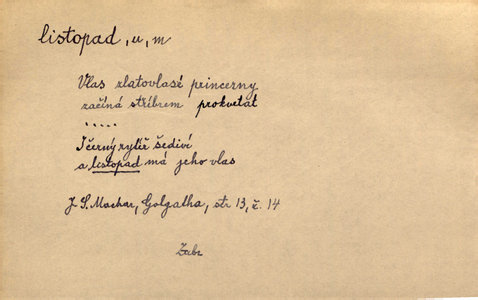 listopad, u, m
Vlas zlatovlasé princezny
začíná stříbrem prokvétat
.....
I černý rytíř šediví
a listopad má jeho vlas
J. S. Machar, Golgatha, str 13, č. 14